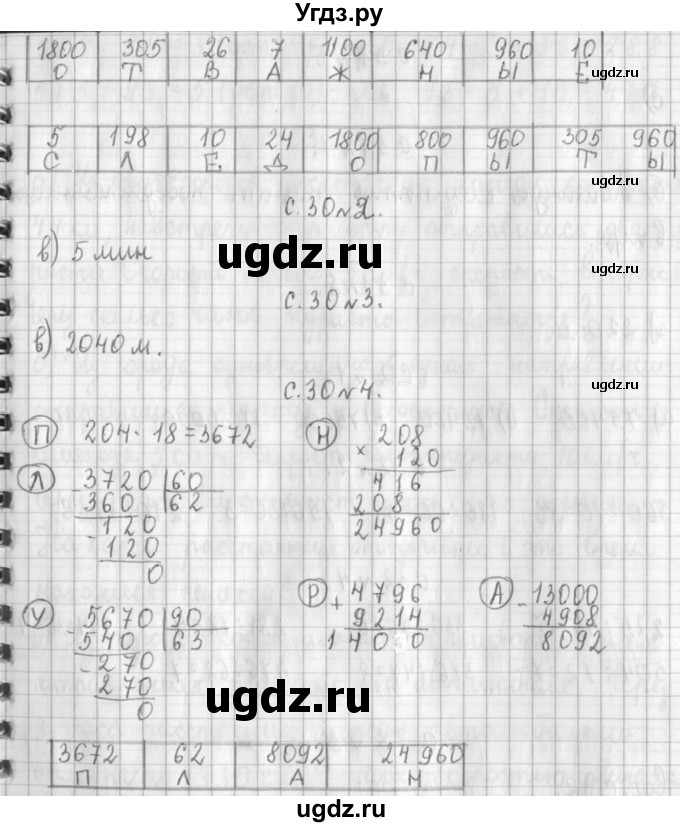 Угдз.ру
1800 305 26 7 1100 640 960 10
О Т В А Ж Н Ы Е
ugdz.ru
5 198 10 24 1800 800 960 305 960
С Л Е Д О П Ы Т Ы
ugdz.ru
с.30 №2.
в) 5 мин
ugdz.ru
ugdz.ru
с.30 №3.
в) 2040 м.
с.30 №4.
ugdz.ru
П 204 · 18 = 3672
Н 208
× 120
416
208
24960
ugdz.ru
Л - 3720 | 60
360 | 62
- 120
120
0
ugdz.ru
У - 5670 | 90
540 | 63
- 270
270
0
Р + 4796
9214
14010
А - 13000
4908
8092
ugdz.ru
ugdz.ru
3672 62 8092 24960
П Л А Н
ugdz.ru
ugdz.ru